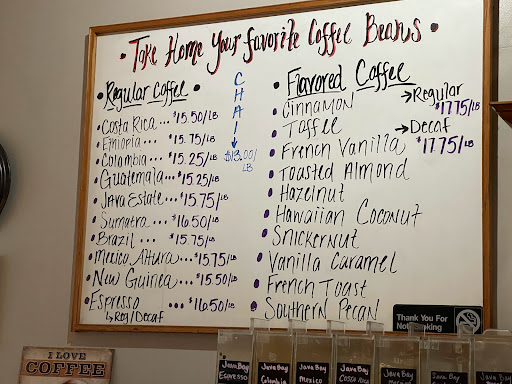 • Take Home Your favorite Coffee Beans •
• Regular Coffee •
• Costa Rica... $15.50/LB
• Ethiopia... $15.75/LB
• Colombia... $15.25/LB
• Guatemala... $15.25/LB
• Java Estate... $15.75/LB
• Sumatra... $16.50/LB
• Brazil... $15.75/LB
• Mexico Altura... $15.75/LB
• New Guinea... $15.50/LB
• Espresso ... $16.50/LB
Reg/Decaf
CHAI
$13.00/LB
• Flavored Coffee
→ Regular
$17.75/LB
→ Decaf
$17.75/LB
• Cinnamon
• Toffee
• French Vanilla
• Toasted Almond
• Hazelnut
• Hawaiian Coconut
• Snickernut
• Vanilla Caramel
• French Toast
• Southern Pecan
Thank You For
Not Smoking
I LOVE
COFFEE
Java Bay
Espresso
Java Bay
Colombia
Java Bay
Mexico
Java Bay
Costa Rica
Java Bay
Java Bay
Java Bay